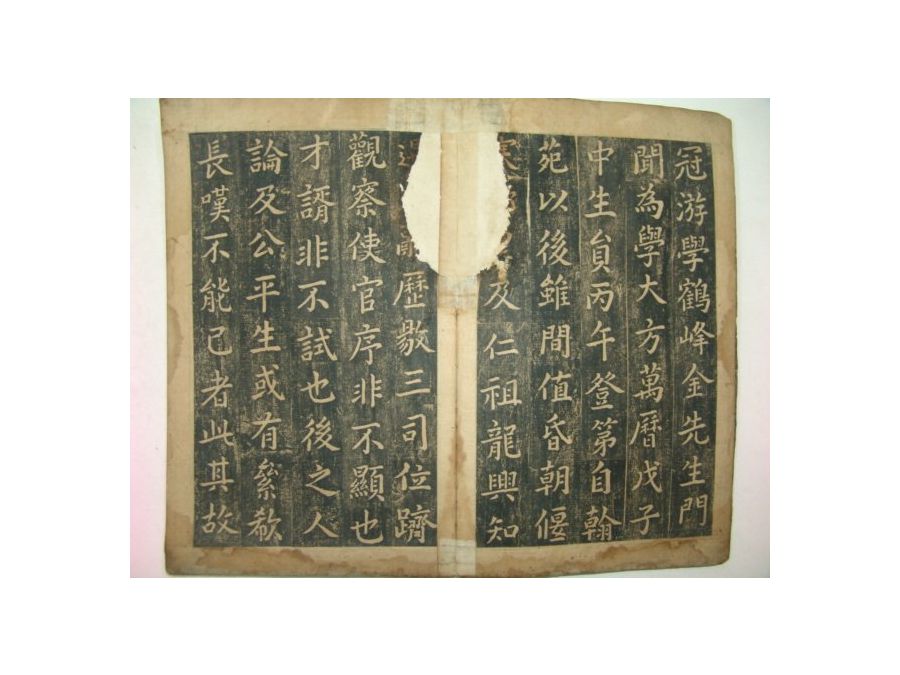 冠游學鶴峰金先生門
聞為學大方萬曆戊子
中生員丙午登第自翰
苑以後雖間值昏朝偃
及仁祖龍興知
歷敭三司位躋
觀察使官序非不顯也
才諝非不試也後之人
論及公平生或有絫欷
長嘆不能已者此其故